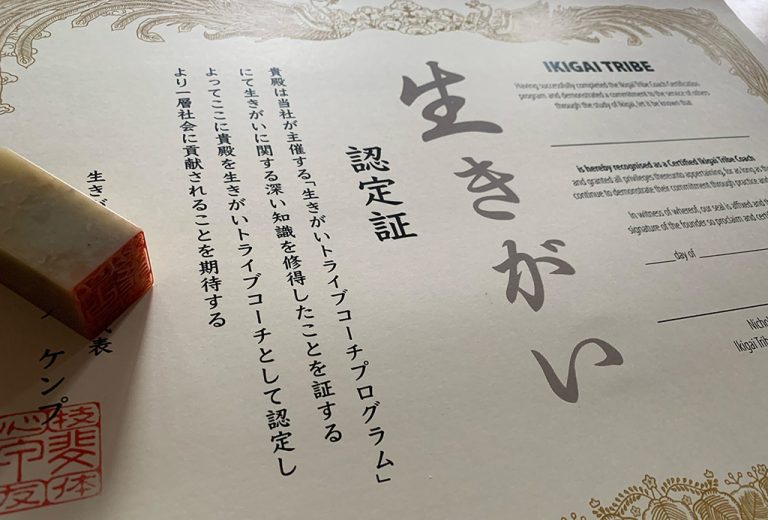 IKIGAI TRIBE
Having successfully completed the Ikigai Tribe Coach Certification
program and demonstrated a commitment to the service of others
through the study of Ikigai, let it be known that
is hereby recognised as a Certified Ikigai Tribe Coach
and granted all privileges thereunto appertaining, for as long as the
continue to demonstrate their commitment through practice and
In witness of whereof, our seal is affixed and the
signature of the founder so proclaim and
day of
Ikigai Trib
生きがい
認定証
貴殿は当社が主催する「生きがいトライブコーチプログラム」
にて生きがいに関する深い知識を修得したことを証する
よってここに貴殿を生きがいトライブコーチとして認定し
より一層社会に貢献されることを期待する
生き
表
ケンプ